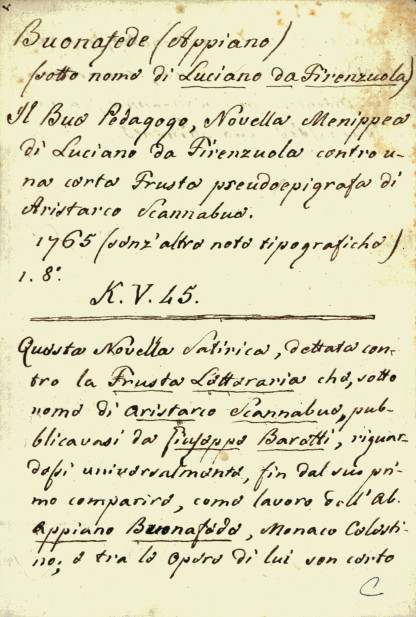 Buonafede (Appiano)
(sotto nome di Luciano da Firenzuola)
Il Bue Pedagogo, Novella Menippea
di Luciano da Firenzuola contro u-
na certa Frusta pseudoepigrafa di
Aristarco Scannabue.
1765 (senz'altre note tipografiche)
1. 8.º
K. V. 45.
Questa Novella Satirica, dettata con-
tro la Frusta Letteraria che, sotto
nome di Aristarco Scannabue, pub-
blicavasi da Giuseppe Baretti, riguar-
dossi universalmente, fin dal suo pri-
mo comparire, come lavoro dell'Ab.
Appiano Buonafede, Monaco Celesti-
no; e tra le opere di lui son certo
C